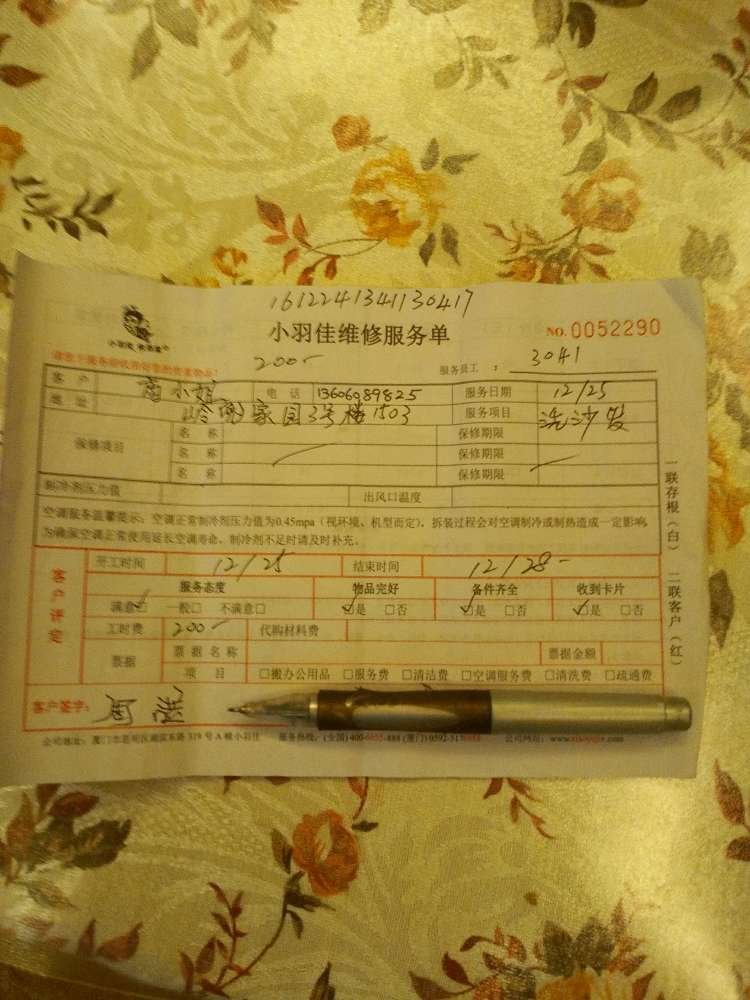 1612241341130417
小羽佳维修服务单
NO.0052290
200-
服务员工： 3041
客户 小姐 电话 13606089825 服务日期 12/25
地址 家园3号楼1503 服务项目 洗沙发
保修项目 名称 保修期限
名称 保修期限
名称 保修期限
制冷剂压力值 出风口温度
空调服务温馨提示：空调正常制冷剂压力值为0.45mpa（视环境、机型而定），拆装过程会对空调制冷或制热造成一定影响，
为确保空调正常使用延长空调寿命，制冷剂不足时请及时补充。
客户评定
开工时间 12/25 结束时间 12/28-
服务态度 物品完好 备件齐全 收到卡片
满意☑ 一般□ 不满意□ ☑是 □否 ☑是 □否 ☑是 □否
工时费 200- 代购材料费
票据 票据名称 票据金额
项目 □搬办公用品 □服务费 □清洁费 □空调服务费 □清洗费 □疏通费
客户签字：
一联存根（白） 二联客户（红）